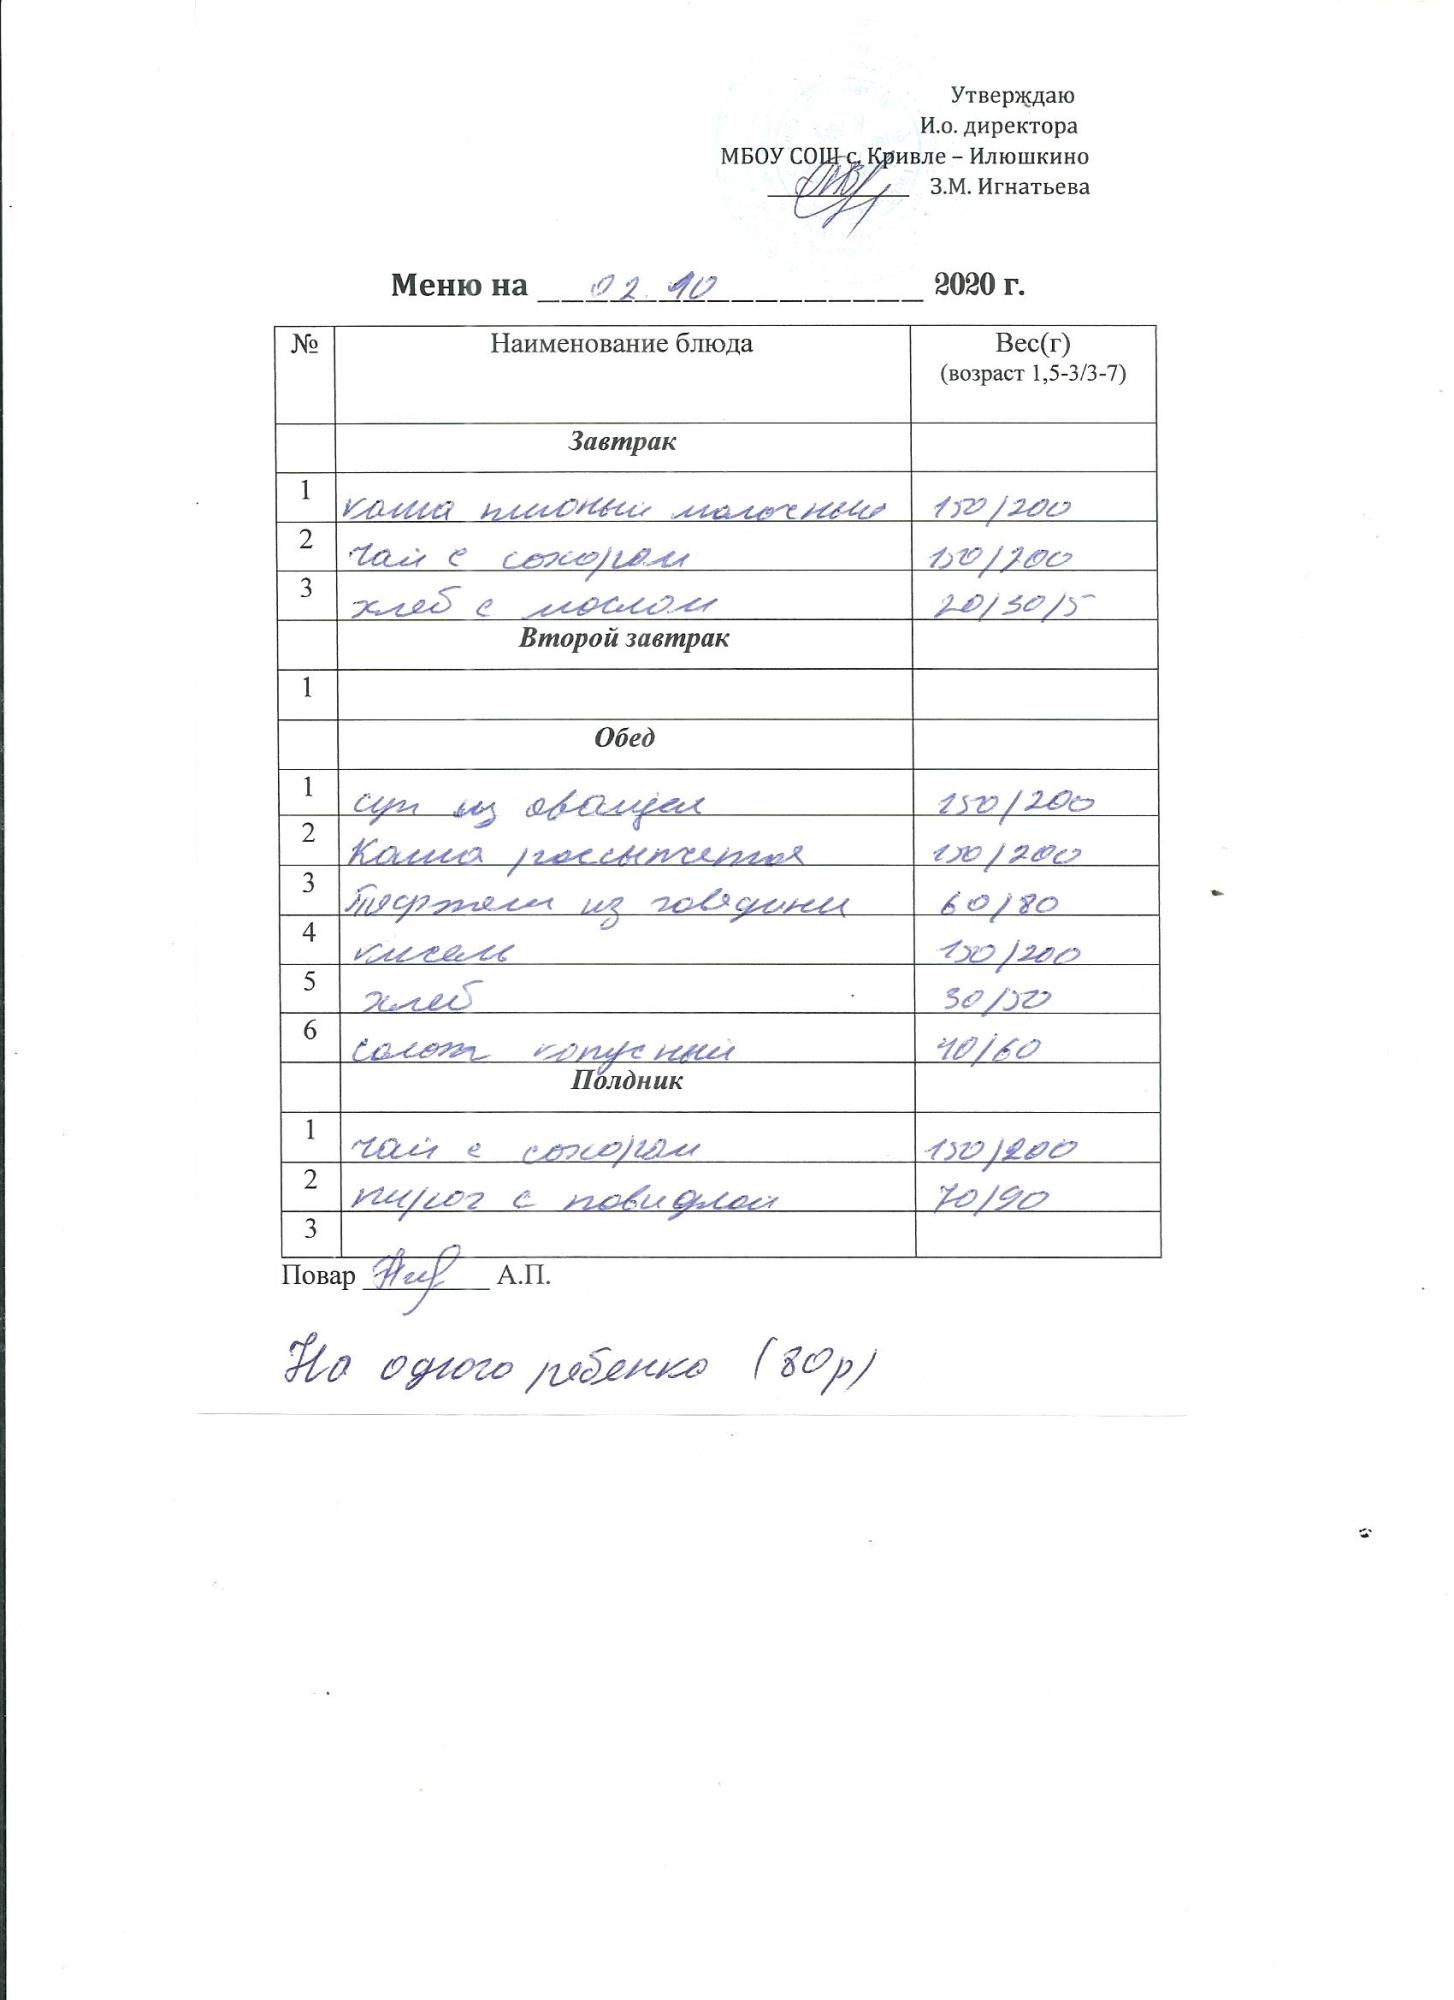 Утверждаю
И.о. директора
МБОУ СОШ с. Кривле – Илюшкино
З.М. Игнатьева
Меню на 02.10 2020 г.
№ Наименование блюда Вес(г)
(возраст 1,5-3/3-7)
Завтрак
1 каша молочный 150/200
2 Чай с сахаром 150/200
3 хлеб с маслом 20/30/5
Второй завтрак
1
Обед
1 суп из овощей 150/200
2 Каша рассыпчатая 150/200
3 из говядини 60/80
4 кисель 150/200
5 хлеб 30/50
6 салат капусный 40/60
Полдник
1 чай с сахаром 150/200
2 пирог с повидлой 70/90
3
Повар А.П.
На одного ребенка (80р)